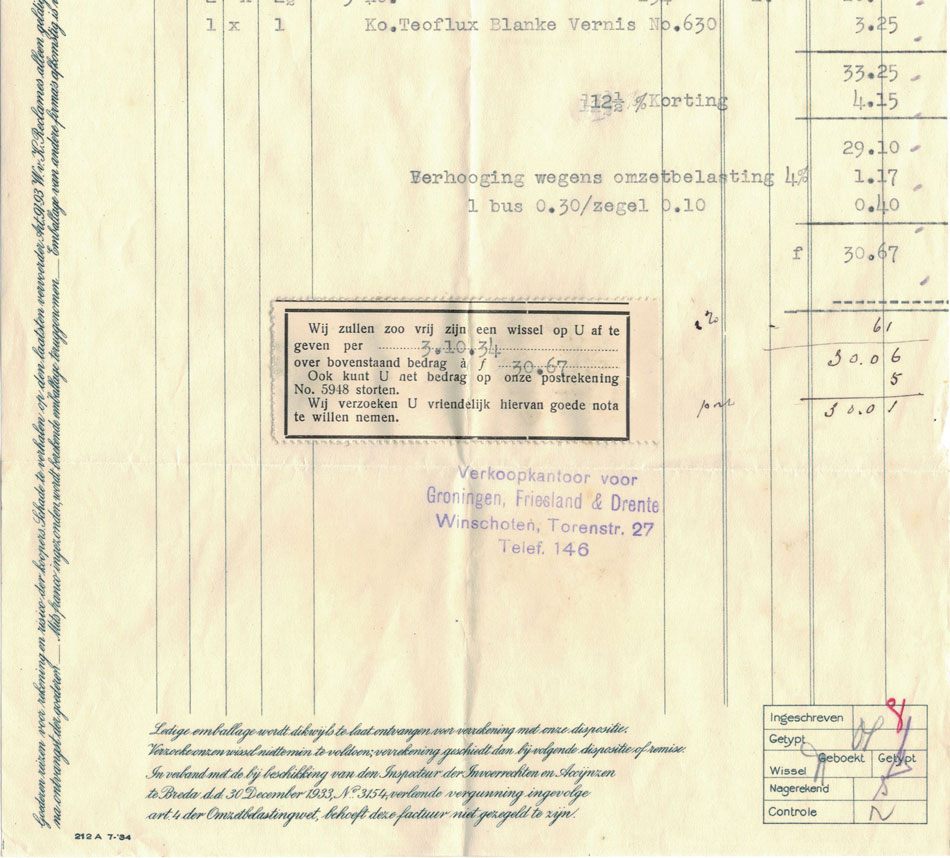 1 x 1 Ko.Teoflux Blanke Vernis No.630 3.25
33.25
12½ % Korting 4.15
29.10
Verhooging wegens omzetbelasting 4% 1.17
1 bus 0.30/zegel 0.10 0.40
f 30.67
Wij zullen zoo vrij zijn een wissel op U af te
geven per 3.10.34
over bovenstaand bedrag à f 30.67
Ook kunt U het bedrag op onze postrekening
No. 5948 storten.
Wij verzoeken U vriendelijk hiervan goede nota
te willen nemen.
61
30.06
5
30.01
Verkoopkantoor voor
Groningen, Friesland & Drente
Winschoten, Torenstr. 27
Telef. 146
Goederen reizen voor rekening en risico der koopers. Schade te verhalen op den laatsten vervoerder Art. 91/93 W.v.K. Reclames alleen geldig
na ontvangst der goederen. Mits franco ingezonden, wordt berekende emballage teruggenomen. Emballage van andere firma's afkomstig is
Ledige emballage wordt dikwijls te laat ontvangen voor verrekening met onze dispositie.
Verzoeke onzen wissel niettemin te voldoen; verrekening geschiedt dan bij volgende dispositie of remise.
In verband met de bij beschikking van den Inspecteur der Invoerrechten en Accijnzen
te Breda d.d. 30 December 1933, No. 3154, verleende vergunning ingevolge
art. 4 der Omzetbelastingwet, behoeft deze factuur niet gezegeld te zijn.
Ingeschreven
Getypt
Geboekt Getypt
Wissel
Nagerekend
Controle
212 A 7-'34